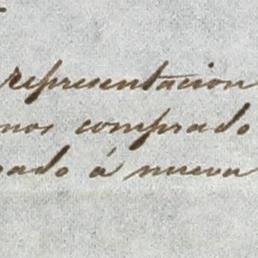 representacion
nos comprado
ado á nueva